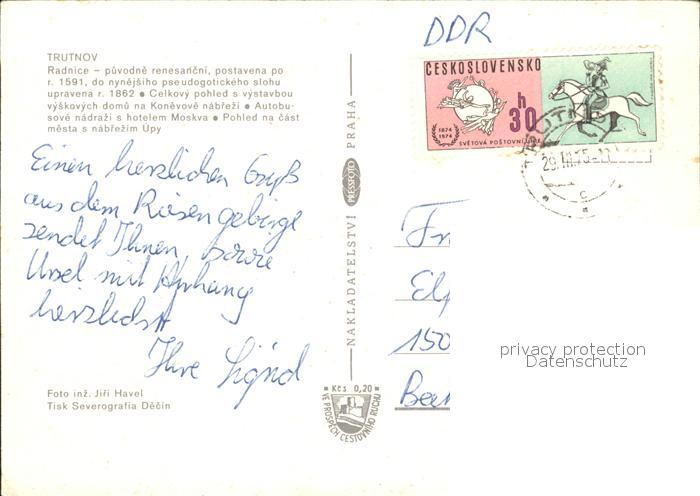 TRUTNOV
Radnice – původně renesanční, postavena po
r. 1591, do nynějšího pseudogotického slohu
upravena r. 1862 • Celkový pohled s výstavbou
výškových domů na Koněvově nábřeží • Autobu-
sové nádraží s hotelem Moskva • Pohled na část
města s nábřežím Úpy
Einen herzlichen Gruß
aus dem Riesengebirge
sendet Ihnen, sowie
Ursel mit Anhang
herzlichst
Ihre Sigrid
Foto inž. Jiří Havel
Tisk Severografia Děčín
NAKLADATELSTVÍ PRESSFOTO PRAHA
Kčs 0,20
VE PROSPĚCH CESTOVNÍHO RUCHU
DDR
ČESKOSLOVENSKO
h
30
1874
1974
SVĚTOVÁ POŠTOVNÍ UNIE
TRUTNOV
29.III.75-11
c
Fr
El
150
privacy protection
Datenschutz